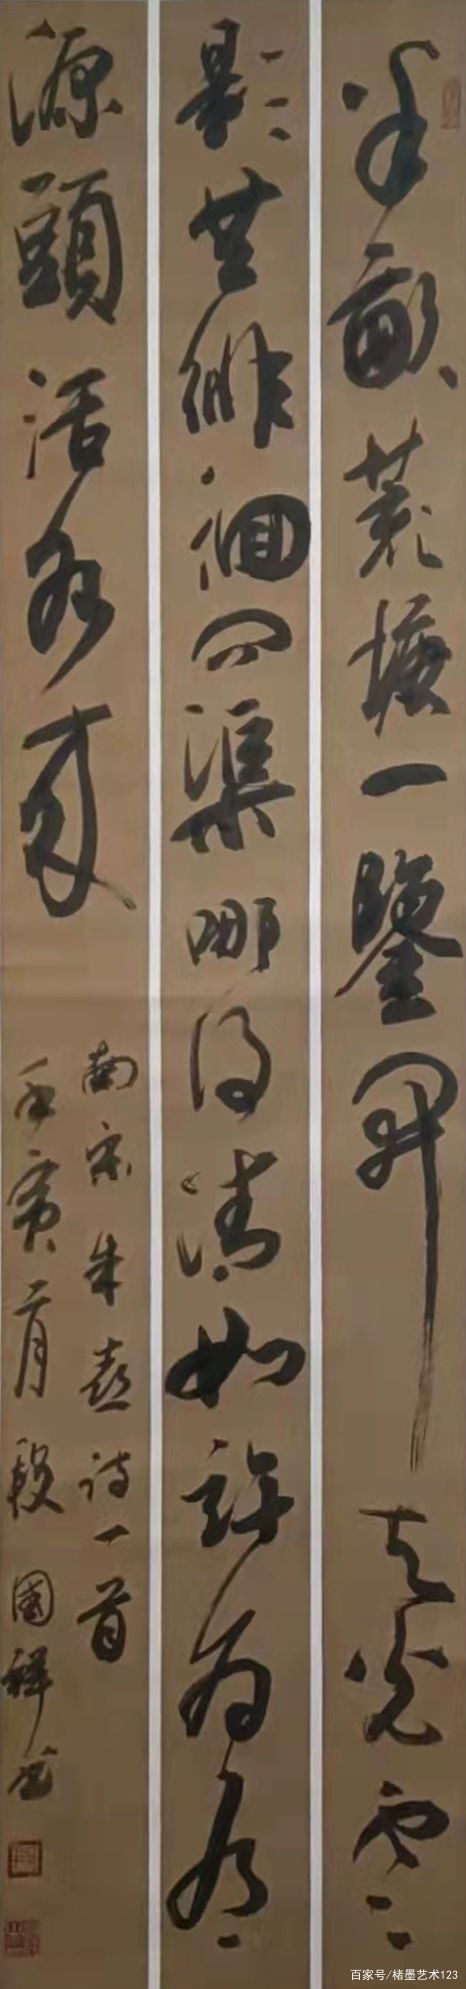 半畝荒塘一鑒開天光雲
影共徘徊問渠哪得清如許為有
源頭活水來
南宋朱熹詩一首
壬寅二月段國祥書
百家号/楮墨艺术123